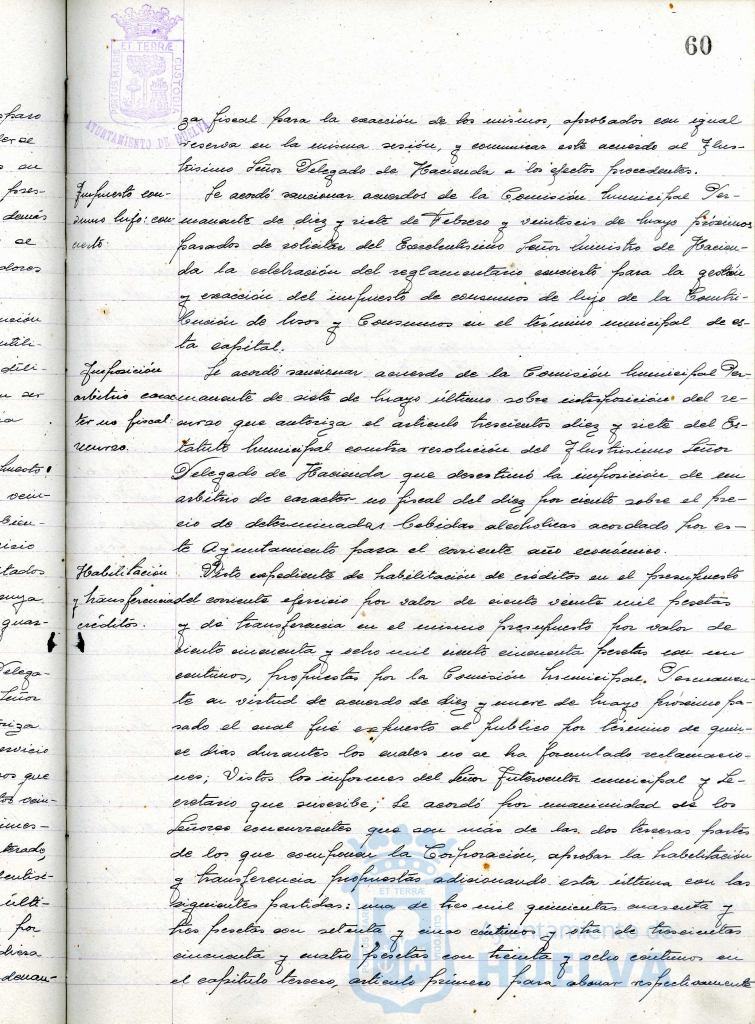 60
PORTUS MARIS ET TERRÆ CUSTODIA
AYUNTAMIENTO DE HUELVA
za fiscal para la exacción de los mismos, aprobados con igual
reserva en la misma sesión, y comunicar este acuerdo al Ilus-
trisimo Señor Delegado de Hacienda a los efectos procedentes.
Impuesto con-
sumo lujo: con-
cierto.
Se acordó sancionar acuerdos de la Comisión Municipal Per-
manente de diez y siete de Febrero y veintiseis de Mayo próximos
pasados de solicitar del Excelentisimo Señor Ministro de Hacien-
da la celebración del reglamentario concierto para la gestión
y exacción del impuesto de consumos de lujo de la Contri-
bución de Usos y Consumos en el término municipal de es-
ta capital.
Imposición
arbitrio carac
ter no fiscal:
recurso.
Se acordó sancionar acuerdo de la Comisión Municipal Per-
manente de siete de Mayo último sobre interposición del re-
curso que autoriza el artículo trescientos diez y siete del Es-
tatuto Municipal contra resolución del Ilustrisimo Señor
Delegado de Hacienda que desestimó la imposición de un
arbitrio de caracter no fiscal del diez por ciento sobre el pre-
cio de determinadas bebidas alcoholicas acordado por es-
te Ayuntamiento para el corriente año económico.
Habilitación
y transferencia
créditos.
Visto expediente de habilitación de créditos en el presupuesto
del corriente ejercicio por valor de ciento veinte mil pesetas
y de transferencia en el mismo presupuesto por valor de
ciento cincuenta y ocho mil ciento cincuenta pesetas con un
centimos, propuestas por la Comisión Municipal Permanen-
te en virtud de acuerdo de diez y nueve de Mayo próximo pa-
sado el cual fué expuesto al publico por término de quin-
ce dias durantes los cuales no se ha formulado reclamacio-
nes; Vistos los informes del Señor Interventor municipal y Se-
cretario que suscribe; Se acordó por unanimidad de los
Señores concurrentes que son más de las dos terceras partes
de los que componen la Corporación, aprobar la habilitación
y transferencia propuestas adicionando esta última con las
siguientes partidas: una de tres mil quinientas cuarenta y
tres pesetas con setenta y cinco céntimos y otra de trescientas
cincuenta y cuatro pesetas con treinta y ocho céntimos en
el capítulo tercero, artículo primero para abonar respectivamente
Ayuntamiento de
HUELVA